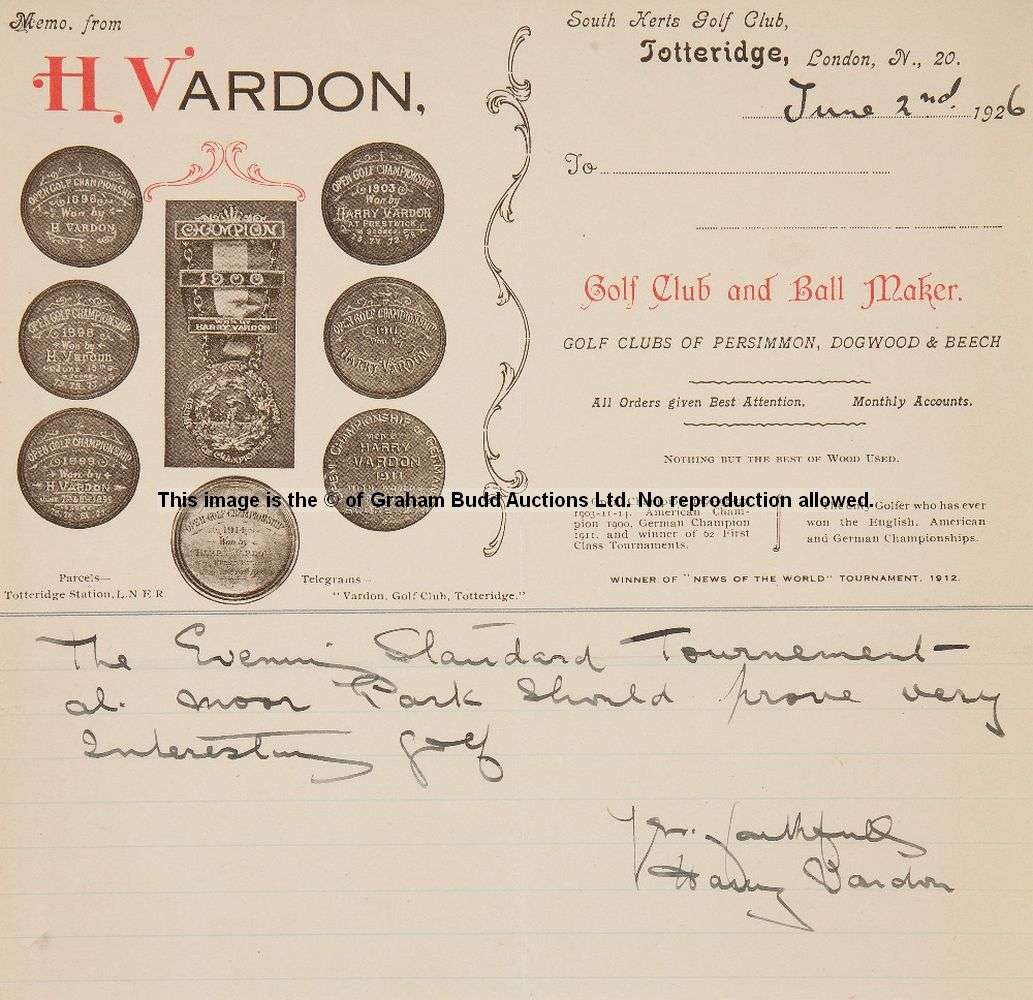 Memo. from
H. VARDON,
South Herts Golf Club,
Totteridge, London, N., 20.
June 2nd. 1926
To
OPEN GOLF CHAMPIONSHIP
1896
Won by
H VARDON
OPEN GOLF CHAMPIONSHIP
1898
Won by
H. Vardon
OPEN GOLF CHAMPIONSHIP
1899
H. VARDON
CHAMPION
1900
HARRY VARDON
OPEN GOLF CHAMPIONSHIP
1903
Won by
HARRY VARDON
AT PRESTWICK
OPEN GOLF CHAMPIONSHIP
1911
HARRY VARDON
CHAMPIONSHIP OF
HARRY
VARDON
1911
OPEN GOLF CHAMPIONSHIP
1914
Won by
Golf Club and Ball Maker.
GOLF CLUBS OF PERSIMMON, DOGWOOD & BEECH
All Orders given Best Attention. Monthly Accounts.
NOTHING BUT THE BEST OF WOOD USED.
This image is the © of Graham Budd Auctions Ltd. No reproduction allowed.
1903-11-14. American Cham-
pion 1900, German Champion
1911, and winner of 62 First
Class Tournaments.
Golfer who has ever
won the English, American
and German Championships.
WINNER OF "NEWS OF THE WORLD" TOURNAMENT, 1912.
Parcels—
Totteridge Station, L.N.E.R.
Telegrams—
"Vardon, Golf Club, Totteridge."
The Evening Standard Tournement
at. moor Park Should prove very
Interesting golf
Yrs. faithfully
Harry Vardon